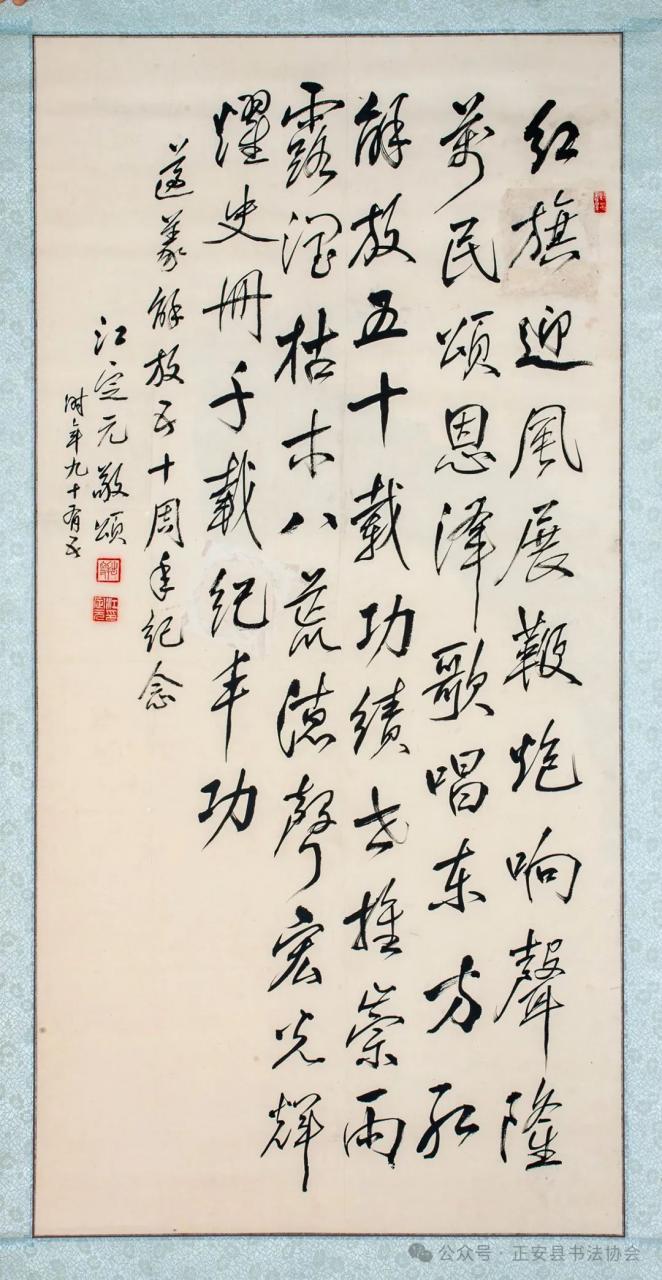 红旗迎风展鞭炮响聲隆
萬民颂恩泽歌唱东方红
解放五十载功绩世推崇雨
露润枯木八荒德聲宏光辉
耀史册千载纪丰功
遵义解放五十周年纪念
江定元敬颂
时年九十有五
公众号·正安县书法协会